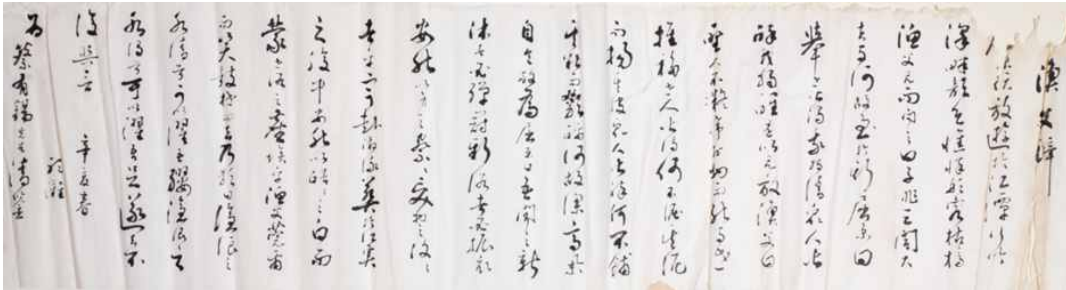 漁父辭
原既放遊於江潭行吟
澤畔顏色憔悴形容枯槁
漁父見而問之曰子非三閭大
夫與何故至於斯屈原曰
舉世皆濁我獨清眾人皆
醉我獨醒是以見放漁父曰
聖人不凝滯於物而能與世
推移世人皆濁何不淈其泥
而揚其波眾人皆醉何不餔
其糟而歠其醨何故深思高舉
自令放為屈原曰吾聞之新
沐者必彈冠新浴者必振衣
安能以身之察察受物之汶汶
者乎寧赴湘流葬於江魚
之腹中安能以皓皓之白而
蒙世俗之塵埃乎漁父莞爾
而笑鼓枻而去乃歌曰滄浪之
水清兮可以濯吾纓滄浪之
水濁兮可以濯吾足遂去不
復與言 辛亥春
為蔡有錫先生清鑒